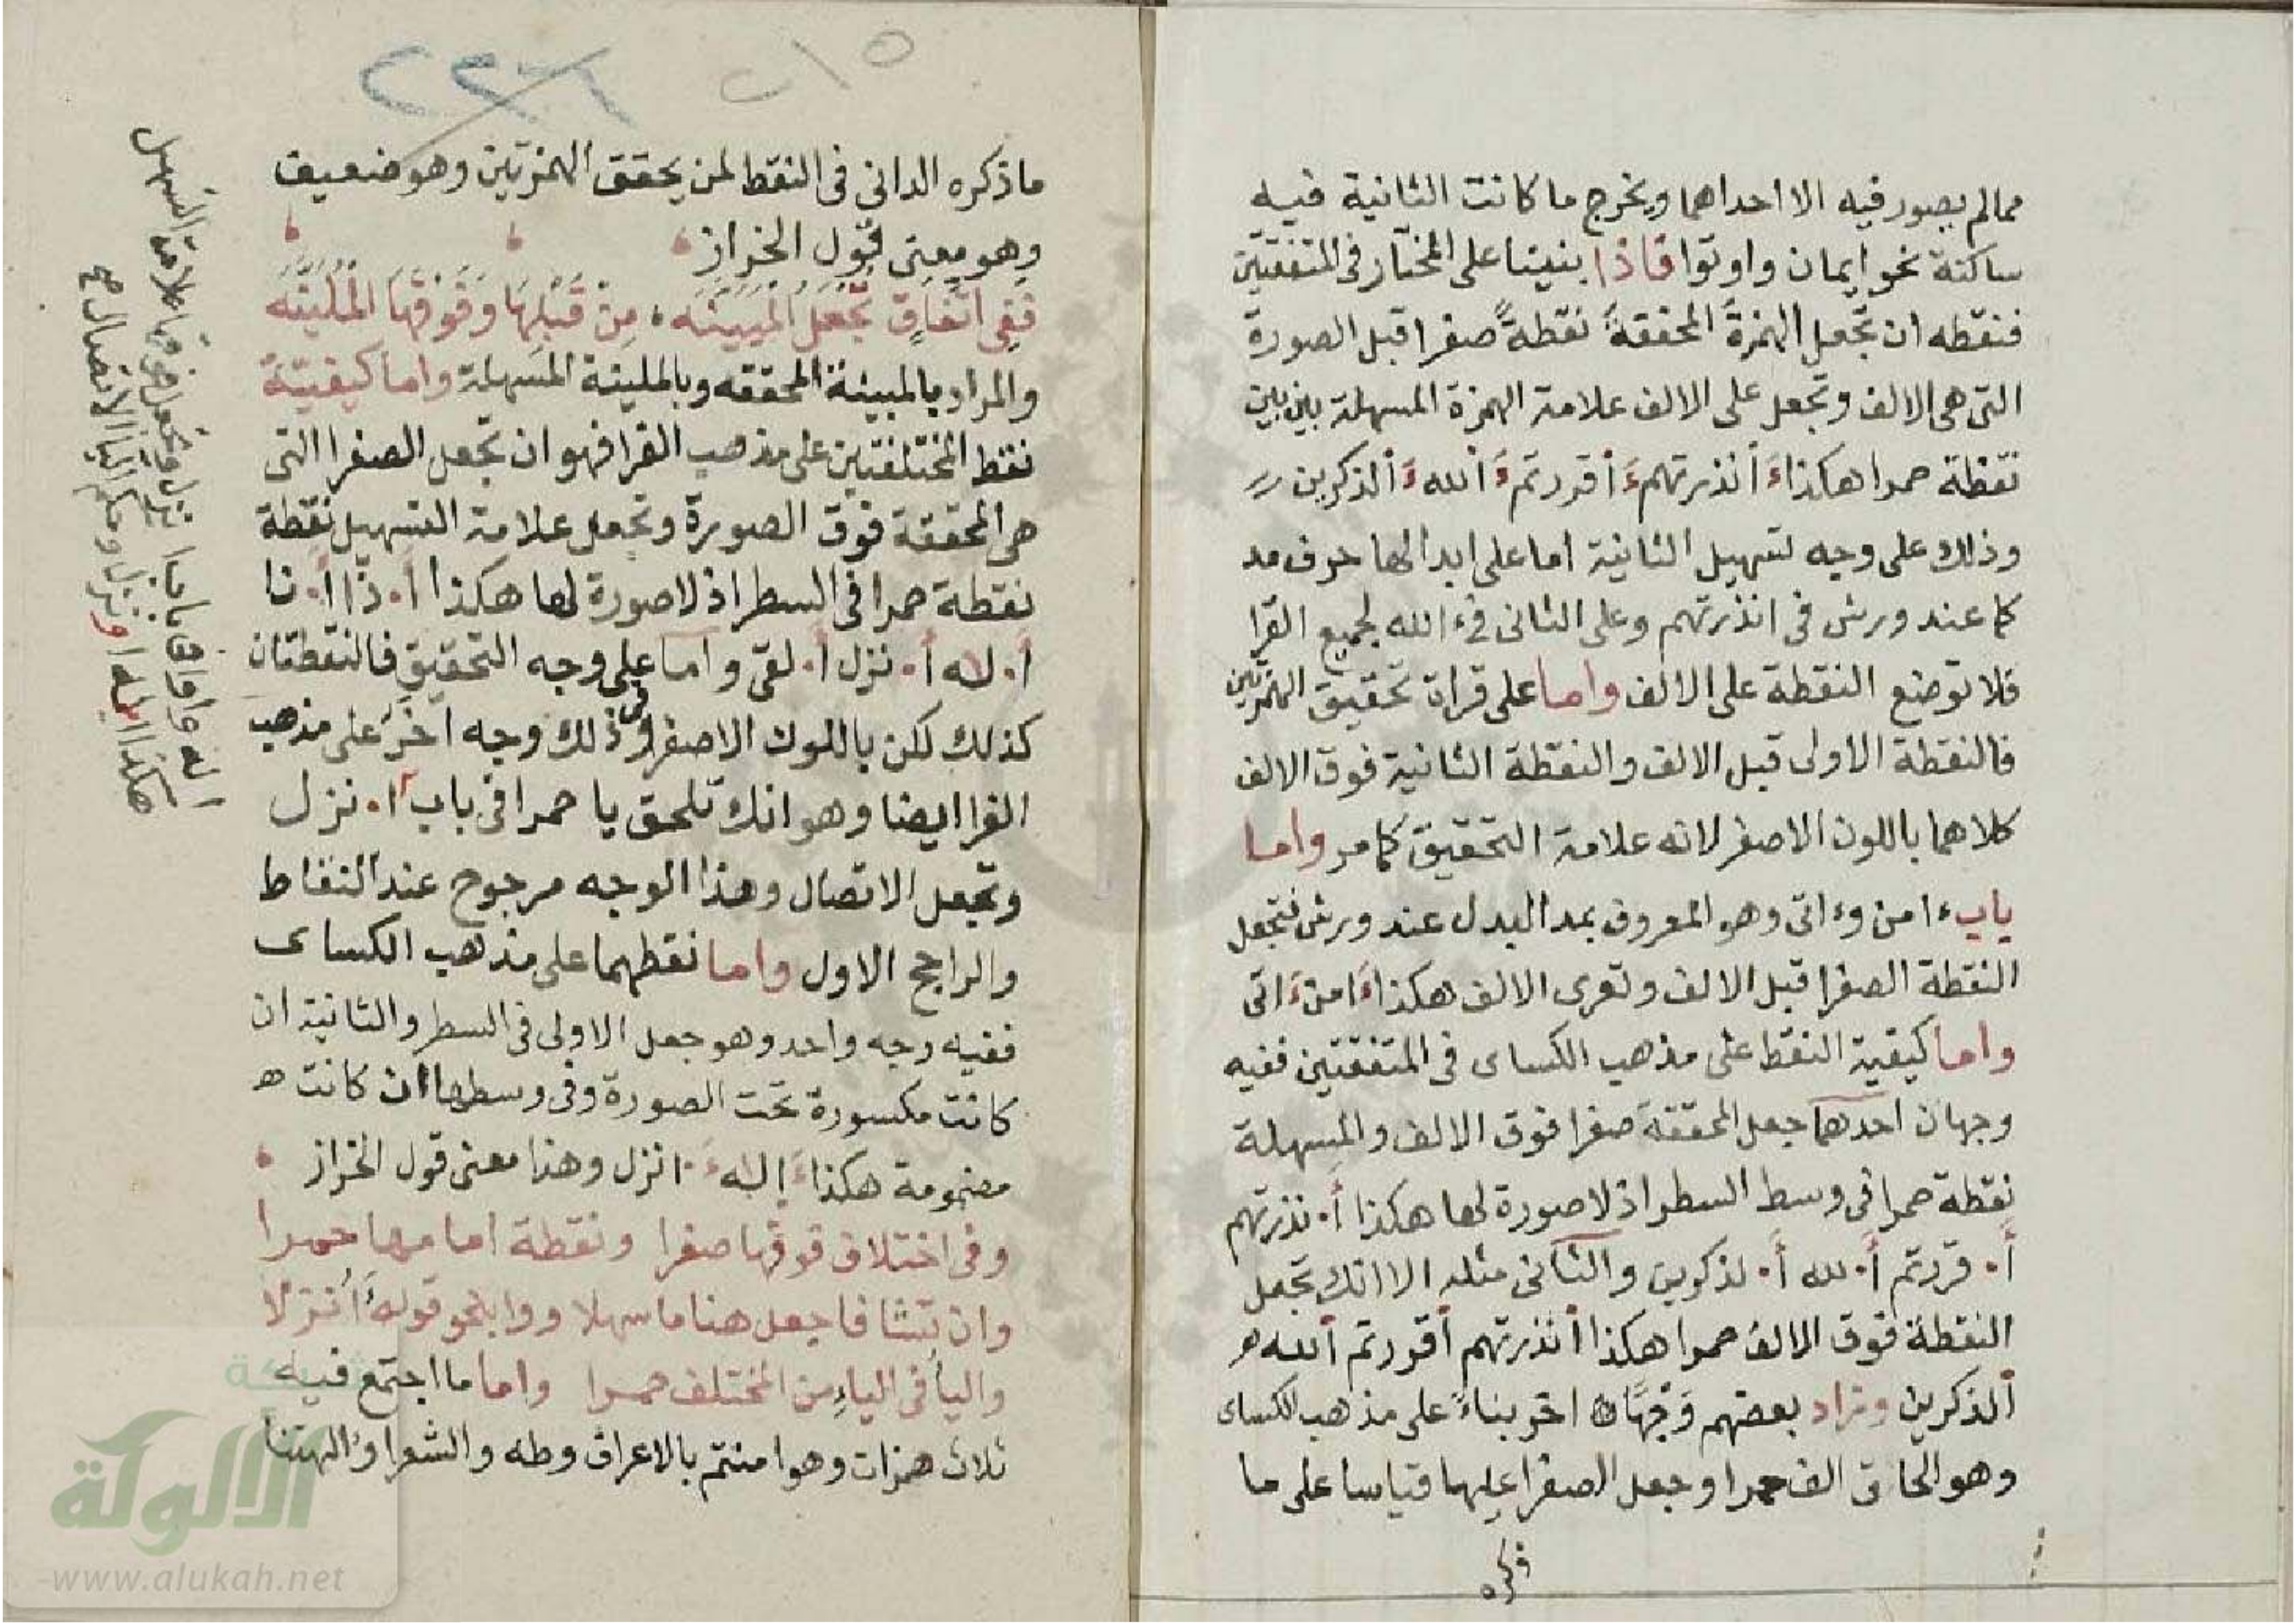 ممالم يصور فيه الا احداهما ويخرج ما كانت الثانية فيه
ساكنة نحو ايمان واوتوا فاذا بنينا على المختار في المتفقتين
فنقطه ان تجعل الهمزة المحققة نقطةً صفرا قبل الصورة
التى هى الالف وتجعل على الالف علامة الهمزة المسهلة بين بين
نقطة حمرا هكذا ءَ أنذرتهم ءَ أقررتم ءَ ألله ءَ ألذكرين
وذلك على وجه تسهيل الثانية اما على ابدالها حرف مد
كما عند ورش فى انذرتهم وعلى الثانى فى ءالله لجميع القرا
فلا توضع النقطة على الالف واما على قراة تحقيق الهمزتين
فالنقطة الاولى قبل الالف والنقطة الثانية فوق الالف
كلاهما باللون الاصفر لانه علامة التحقيق كما مر واما
باب ءامن وءاتى وهو المعروف بمد البدل عند ورش فتجعل
النقطة الصفرا قبل الالف وتعرى الالف هكذا ءَامن ءَاتى
واما كيفية النقط على مذهب الكساى فى المتفقتين ففيه
وجهان احدهما جعل المحققة صفرا فوق الالف والمسهلة
نقطة حمرا فى وسط السطر اذ لا صورة لها هكذا أ. نذرتهم
أ. قررتم أ. لله أ. لذكرين والثانى مثله الا انك تجعل
النقطة فوق الالف حمرا هكذا أنذرتهم أقررتم ألله
ألذكرين وزاد بعضهم وَجْهًا اخر بناءً على مذهب الكساى
وهو الحاق الف حمرا وجعل الصفرا عليها قياسا على ما
ذكره
٢٢٦
ما ذكره الدانى فى النقط لمن يحقق الهمزتين وهو ضعيف
وهو معنى قول الخراز
فَفِى اتِّفَاقٍ تُجْعَلُ الْمُبَيَّنَه مِنْ قَبْلِهَا وَفَوْقَهَا الْمُلَيَّنَه
والمراد بالمبينة المحققه وبالملينة المسهلة واما كيفيّة
نقط المختلفتين على مذهب الفرا فهو ان تجعل الصفرا التى
هى المحققة فوق الصورة وتجعل علامة التسهيل نقطة
نقطة حمرا فى السطر اذ لا صورة لها هكذا أ. ذا أ. نا
أ. له أ. نزل أ. لقى واما على وجه التحقيق فالنقطتان
كذلك لكن باللون الاصفر وفى ذلك وجه اخر على مذهب
الفرا ايضا وهو انك تلحق يا حمرا فى باب أ. نزل
وتجعل الاتصال وهذا الوجه مرجوح عند النقاط
والراجح الاول واما نقطهما على مذهب الكساى
ففيه وجه واحد وهو جعل الاولى فى السطر والثانية ان
كانت مكسورة تحت الصورة وفى وسطها ان كانت
مضمومة هكذا ءَ إله ءَ انزل وهذا معنى قول الخراز
وفى اختلاف فوقها صفرا ونقطة امامها حمرا
وان تشا فاجعل هنا ما سهلا واوا بنحو قوله أَءُنزلا
واليا فى الياءِ من المختلف حمرا واما ما اجتمع فيه
ثلاث همزات وهو امنتم بالاعراف وطه والشعرا وءالهتنا
هكذا
الالوكة
www.alukah.net